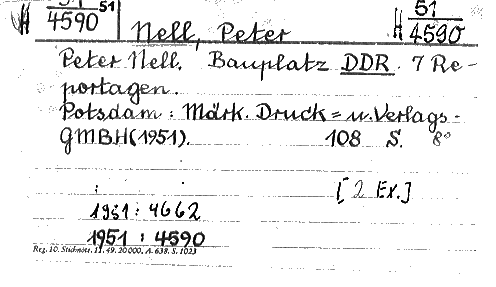 51
4590
Nell, Peter
51
4590
Peter Nell. Bauplatz DDR. 7 Re-
portagen.
Potsdam: Märk. Druck= u. Verlags-
GMBH (1951). 108 S. 8°
[2 Ex.]
1951 : 4662
1951 : 4590
Reg. 10. Stichnote. 11. 49. 20 000. A. 638. S. 1023